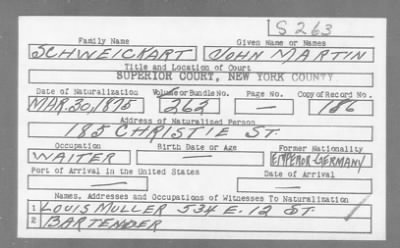 S 263
Family Name Given Name or Names
SCHWEICKART JOHN MARTIN
Title and Location of Court
SUPERIOR COURT, NEW YORK COUNTY
Date of Naturalization Volume or Bundle No. Page No. Copy of Record No.
MAR. 30, 1875 263 — 186
Address of Naturalized Person
185 CHRISTIE ST.
Occupation Birth Date or Age Former Nationality
WAITER — EMPEROR GERMANY
Port of Arrival in the United States Date of Arrival
— —
Names, Addresses and Occupations of Witnesses To Naturalization
1 LOUIS MULLER 534 E. 12 ST.
2 BARTENDER